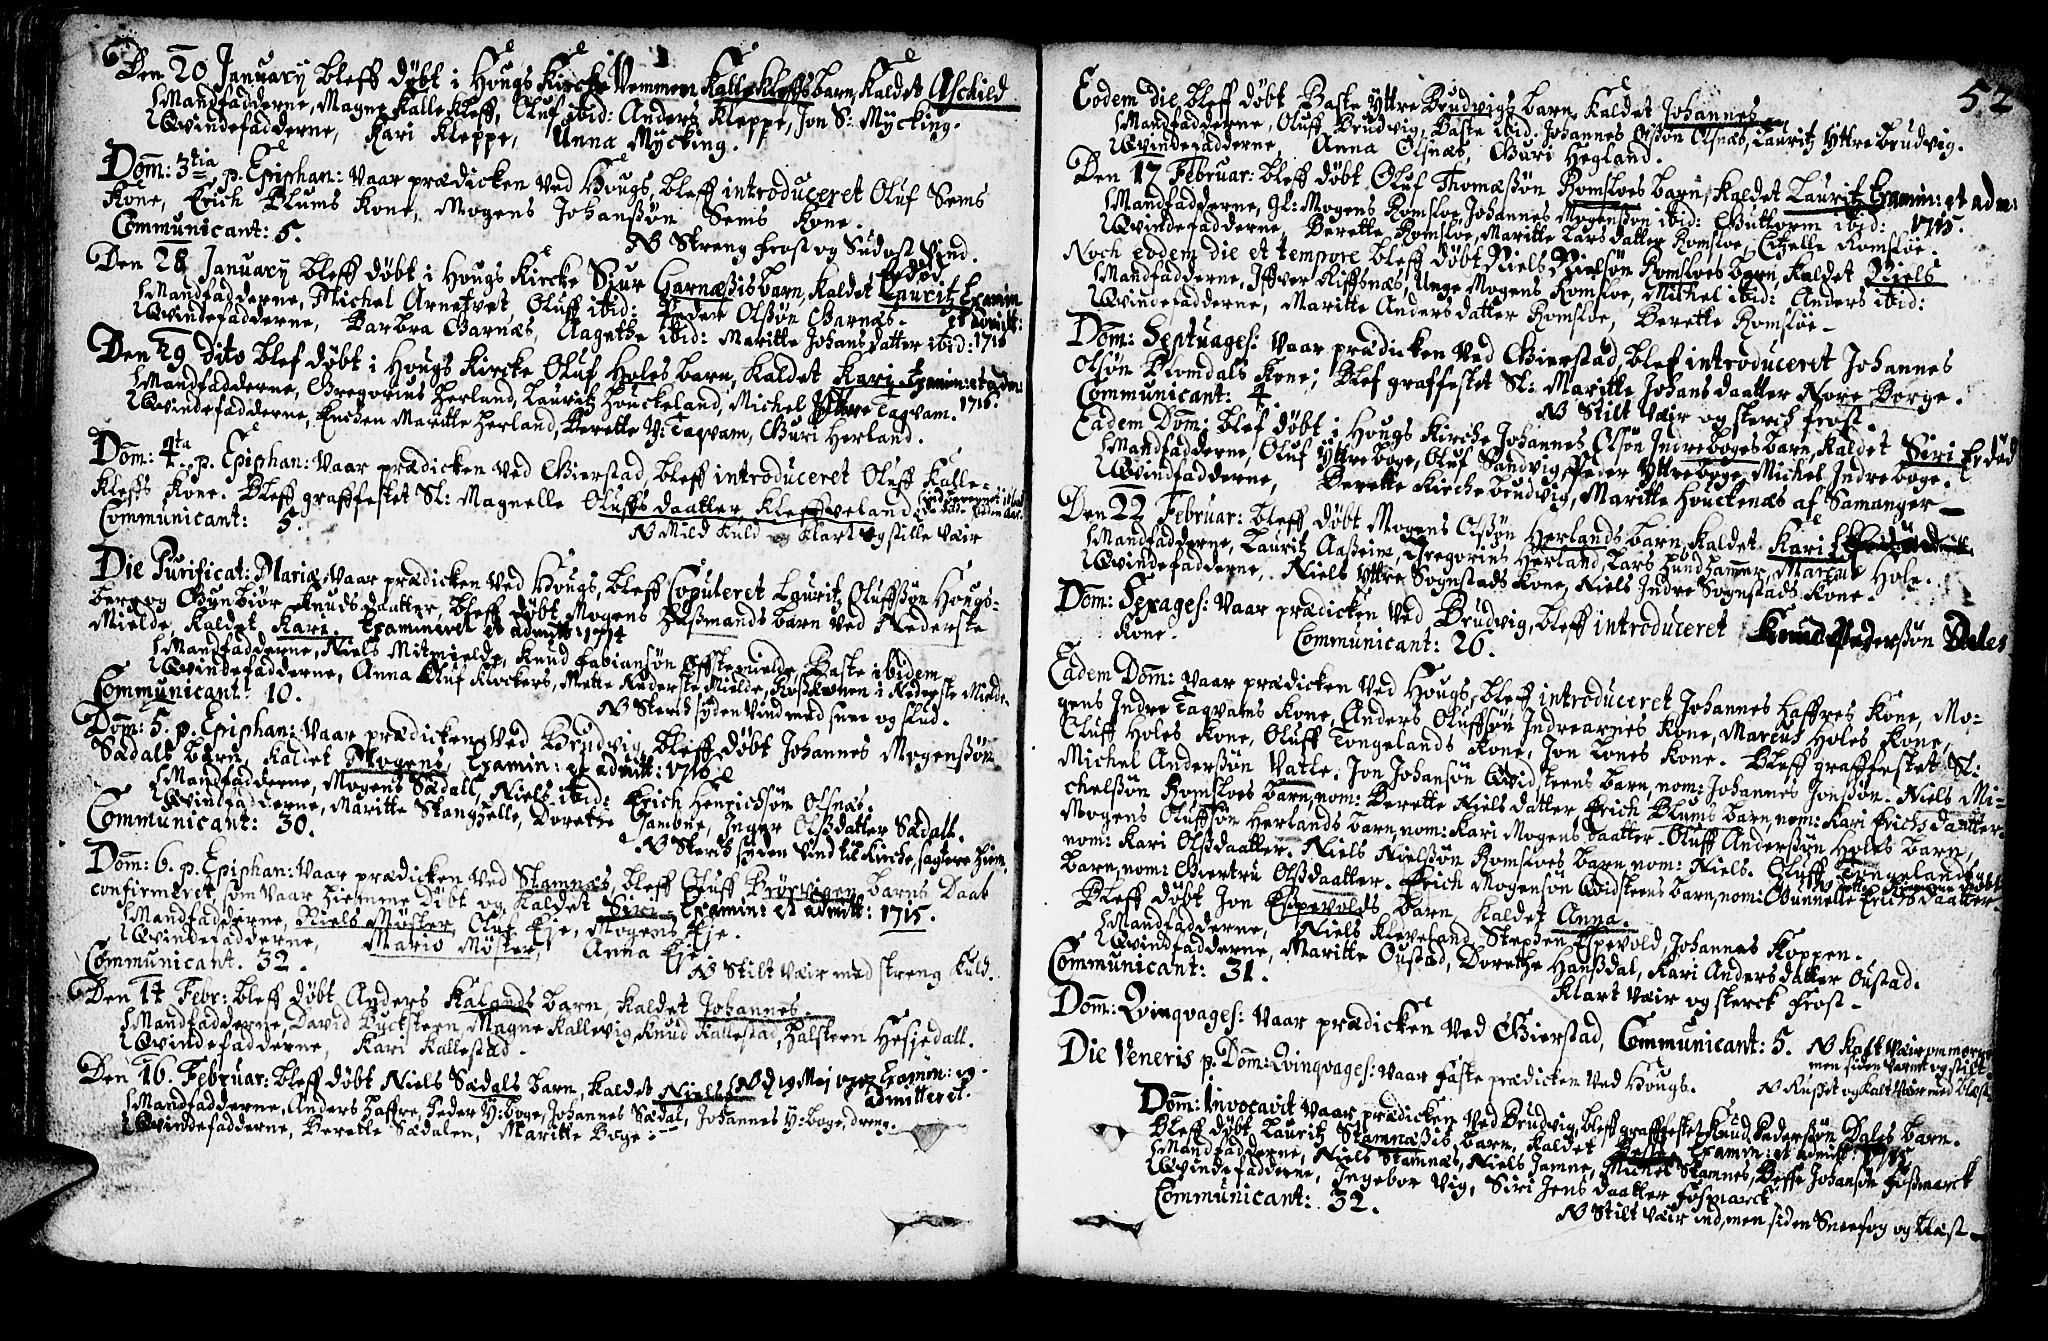 Den 20 January bleff døbt i Hougs Kircke Vemmen Kallekleffs barn, Kaldet Aschild
Mandfadderne, Magne Kallekleff, Oluf ibid: Anders Kleppe, Jon S: Mycking.
Qvindefadderne, Kari Kleppe, Anna Mycking.
Dom: 3tia p. Epiphan: Vaar prædicken Ved Hougs, bleff introduceret Oluf Sems
Kone, Erich Blums Kone, Mogens Johanssøn Sems Kone.
Communicant: 5.
NB Streng frost og Sudost Vind.
Den 28 January bleff døbt i Hougs Kircke Siur Garnæssis barn, Kaldet Lauritz Examin:
er død
Mandfadderne, Michel Arnetvet, Oluff ibid: Peder Olssøn Garnæs. et admitt:
Qvindefadderne, Barbra Garnæs, Aagethe ibid: Maritte Johansdatter ibid: 1716
Den 29 dito blef døbt i Hougs Kircke Oluf Holes barn, Kaldet Kari Examin: et adm:
Mandfadderne, Gregorius Herland, Lauritz Houckeland, Michel Yttre Tagvam. 1716.
Qvindefadderne, Enchen Maritte Herland, Berette Y: Tagvam, Guri Herland.
Dom: 4ta p. Epiphan: Vaar prædicken Ved Gierstad, bleff introduceret Oluff Kalle-
kleffs Kone. Bleff grafffestet Sl: Magnelle Oluffs daatter Kleffveland
Communicant: 5.
NB Mild Kuld og Klart og stille Vær
Die Purificat: Mariæ Vaar prædicken Ved Hougs, bleff Copuleret Lauritz Oluffssøn Hougs-
berg og Gunbiør Knuds daatter, bleff døbt Mogens Hussmands barn Ved Nederste
Mielde, Kaldet Kari. Examineret et admitt: 1714
Mandfadderne, Niels Mitmielde, Knud Fabianssøn Øffstemielde, Baste ibidem
Qvindefadderne, Anna Oluf Klockers, Mette Nederste Mielde, Kone i Nederste Mielde.
Communicant: 10.
NB Sterck syden Vind med snee og slud.
Dom: 5. p. Epiphan: Vaar prædicken Ved Brudvig, bleff døbt Johannes Mogenssøn
Sædals barn, Kaldet Mogens, Examin: et admitt: 1716
Mandfadderne, Mogens Sædall, Niels ibid: Erich Henrichsøn Olsnæs.
Qvindfadderne, Maritte Stanghelle, Dorethe Jamone, Inger Olssdatter Sædall.
Communicant: 30.
NB Sterck syden Vind til Kircke, sagtere hiem.
Dom: 6. p. Epiphan: Vaar prædicken Ved Stamnæs, bleff Oluff Brørvigen barns Daab
confirmeret, som Vaar hiemme døbt og Kaldet Siri Examin: et admitt: 1715.
Mandfadderne, Niels Møster, Oluf Eje, Mogens Eje.
Qvindefadderne, Mario Møster, Anna Eje.
Communicant. 32.
NB Stilt Vær med streng Kuld.
Den 14 Febr: bleff døbt Anders Kalands barn, Kaldet Johannes.
Mandfadderne, David Byckstern, Magne Kallevig, Knud Kallestad, Halsteen Hesjedall.
Qvindefadderne, Kari Kallestad.
Den 16. Februar: bleff døbt Niels Sædals barn, Kaldet Niels Examin: og
admitteret.
Mandfadderne, Anders Haffre, Peder Y: boge, Johannes Sædal, Johannes Y: boge, dreng.
Qvindefadderne, Berette Sædalen, Maritte Boge.
52
Eodem die bleff døbt Baste Yttre Brudvigs barn, Kaldet Johannes
Mandfadderne, Oluff Brudvig, Baste ibid. Johannes Olssøn Olsnæs, Lauritz Yttre Brudvig.
Qvindefadderne, Anna Olsnæs, Guri Hegland.
Den 17 Februar: bleff døbt Oluf Thomæssøn Romsloes barn, Kaldet Lauritz Examin: et adm:
Mandfadderne, gl: Mogens Romsloe, Johannes Mogenssøn ibid: Guttorm ibid: 1715.
Qvindefadderne, Berette Romsloe, Maritte Larsdatter Romsloe, Citzelle Romsloe
Noch eodem die et tempore bleff døbt Niels Nielsøn Romsloes barn, Kaldet Niels
Mandfadderne, Iffver Riffsnæs, Unge Mogens Romsloe, Michel ibid: Anders ibid:
Qvindefadderne, Maritte Andersdatter Romsloe, Berette Romsloe
Dom: Septuages: Vaar prædicken Ved Gierstad, blef introduceret Johannes
Olsøn Blomdals Kone, Blef graffestet Sl: Maritte Johans daatter Nore Borge.
Communicant: 4.
NB Stilt Vær og sterck frost.
Eadem Dom: blef døbt i Hougs Kircke Johannes Olsøn Indreboges barn, Kaldet Siri Er død
Mandfadderne, Oluf Yttreboge, Oluf Sandvig, Peder Yttreboge, Michel Indreboge.
Qvindfadderne, Berette Kirckebrudvig, Maritte Houckenæs af Samanger
Den 22 Februar: bleff døbt Mogens Olssøn Herlands barn, Kaldet Kari
Mandfadderne, Lauritz Aasheim, Gregorius Herland, Lars Hundhammer, Marcus Hole.
Qvindefadderne, Niels Yttre Sognstads Kone, Niels Indre Sognstads Kone.
Dom: Sexages: Vaar prædicken Ved Brudvig, bleff introduceret Knud Pederssøn Dales
Kone. Communicant: 26.
Eadem Dom: Vaar prædicken Ved Hougs, bleff introduceret Johannes Haffres Kone, Mo-
gens Indre Tagvams Kone, Anders Oluffsøn Indrearnes Kone, Marcus Holes Kone,
Oluff Holes Kone, Oluff Tongelands Kone, Jon Lones Kone. Bleff grafffestet Sl:
Michel Anderssøn Vatle. Jon Johansøn Qvidsteens barn, nom: Johannes Jonssøn. Niels Mi-
chelssøn Romsloes barn, nom: Berette Nielsdatter, Erich Blums barn, nom: Kari Erichs daatter.
Mogens Oluffssøn Herlands barn, nom: Kari Mogens daatter. Oluff Anderssøn Holes barn,
nom: Kari Olssdaatter. Niels Nielssøn Romsloes barn, nom: Niels. Oluff Tongelands
barn, nom: Giertru Olssdaatter. Erich Mogensøn Qvidsteens barn, nom: Gunnelle Erichs daatter.
Bleff døbt Jon Espevolds barn, Kaldet Anna.
Mandfadderne, Niels Kleveland, Stephen Espevold, Johannes Koppen.
Qvindfadderne, Maritte Oustad, Dorethe Hanssdal, Kari Andersdatter Oustad.
Communicant: 31.
Klart Vær og sterck frost.
Dom: Qvinqvages: Vaar prædicken Ved Gierstad, Communicant: 5. NB Kaft Vær om morgen
men siden Varmt og stilt.
Die Veneris p. Dom: Qvinqvages: Vaar faste prædicken Ved Hougs. NB Rusket og Kalt Vær med blæst
Dom: Invocavit Vaar prædicken Ved Brudvig, bleff grafffestet Knud Pederssøn Dales barn.
Bleff døbt Lauritz Stamnæssis barn, Kaldet Examin: et admitt:
Mandfadderne, Niels Stamnæs, Niels Jamne, Michel Stamnes, Deffe Johansøn Fossmarck
Qvindefadderne, Ingebor Vig, Siri Jens daatter Fosmarck
Communicant: 32.
NB Stilt Vær ind, men siden Sneefog og blæst